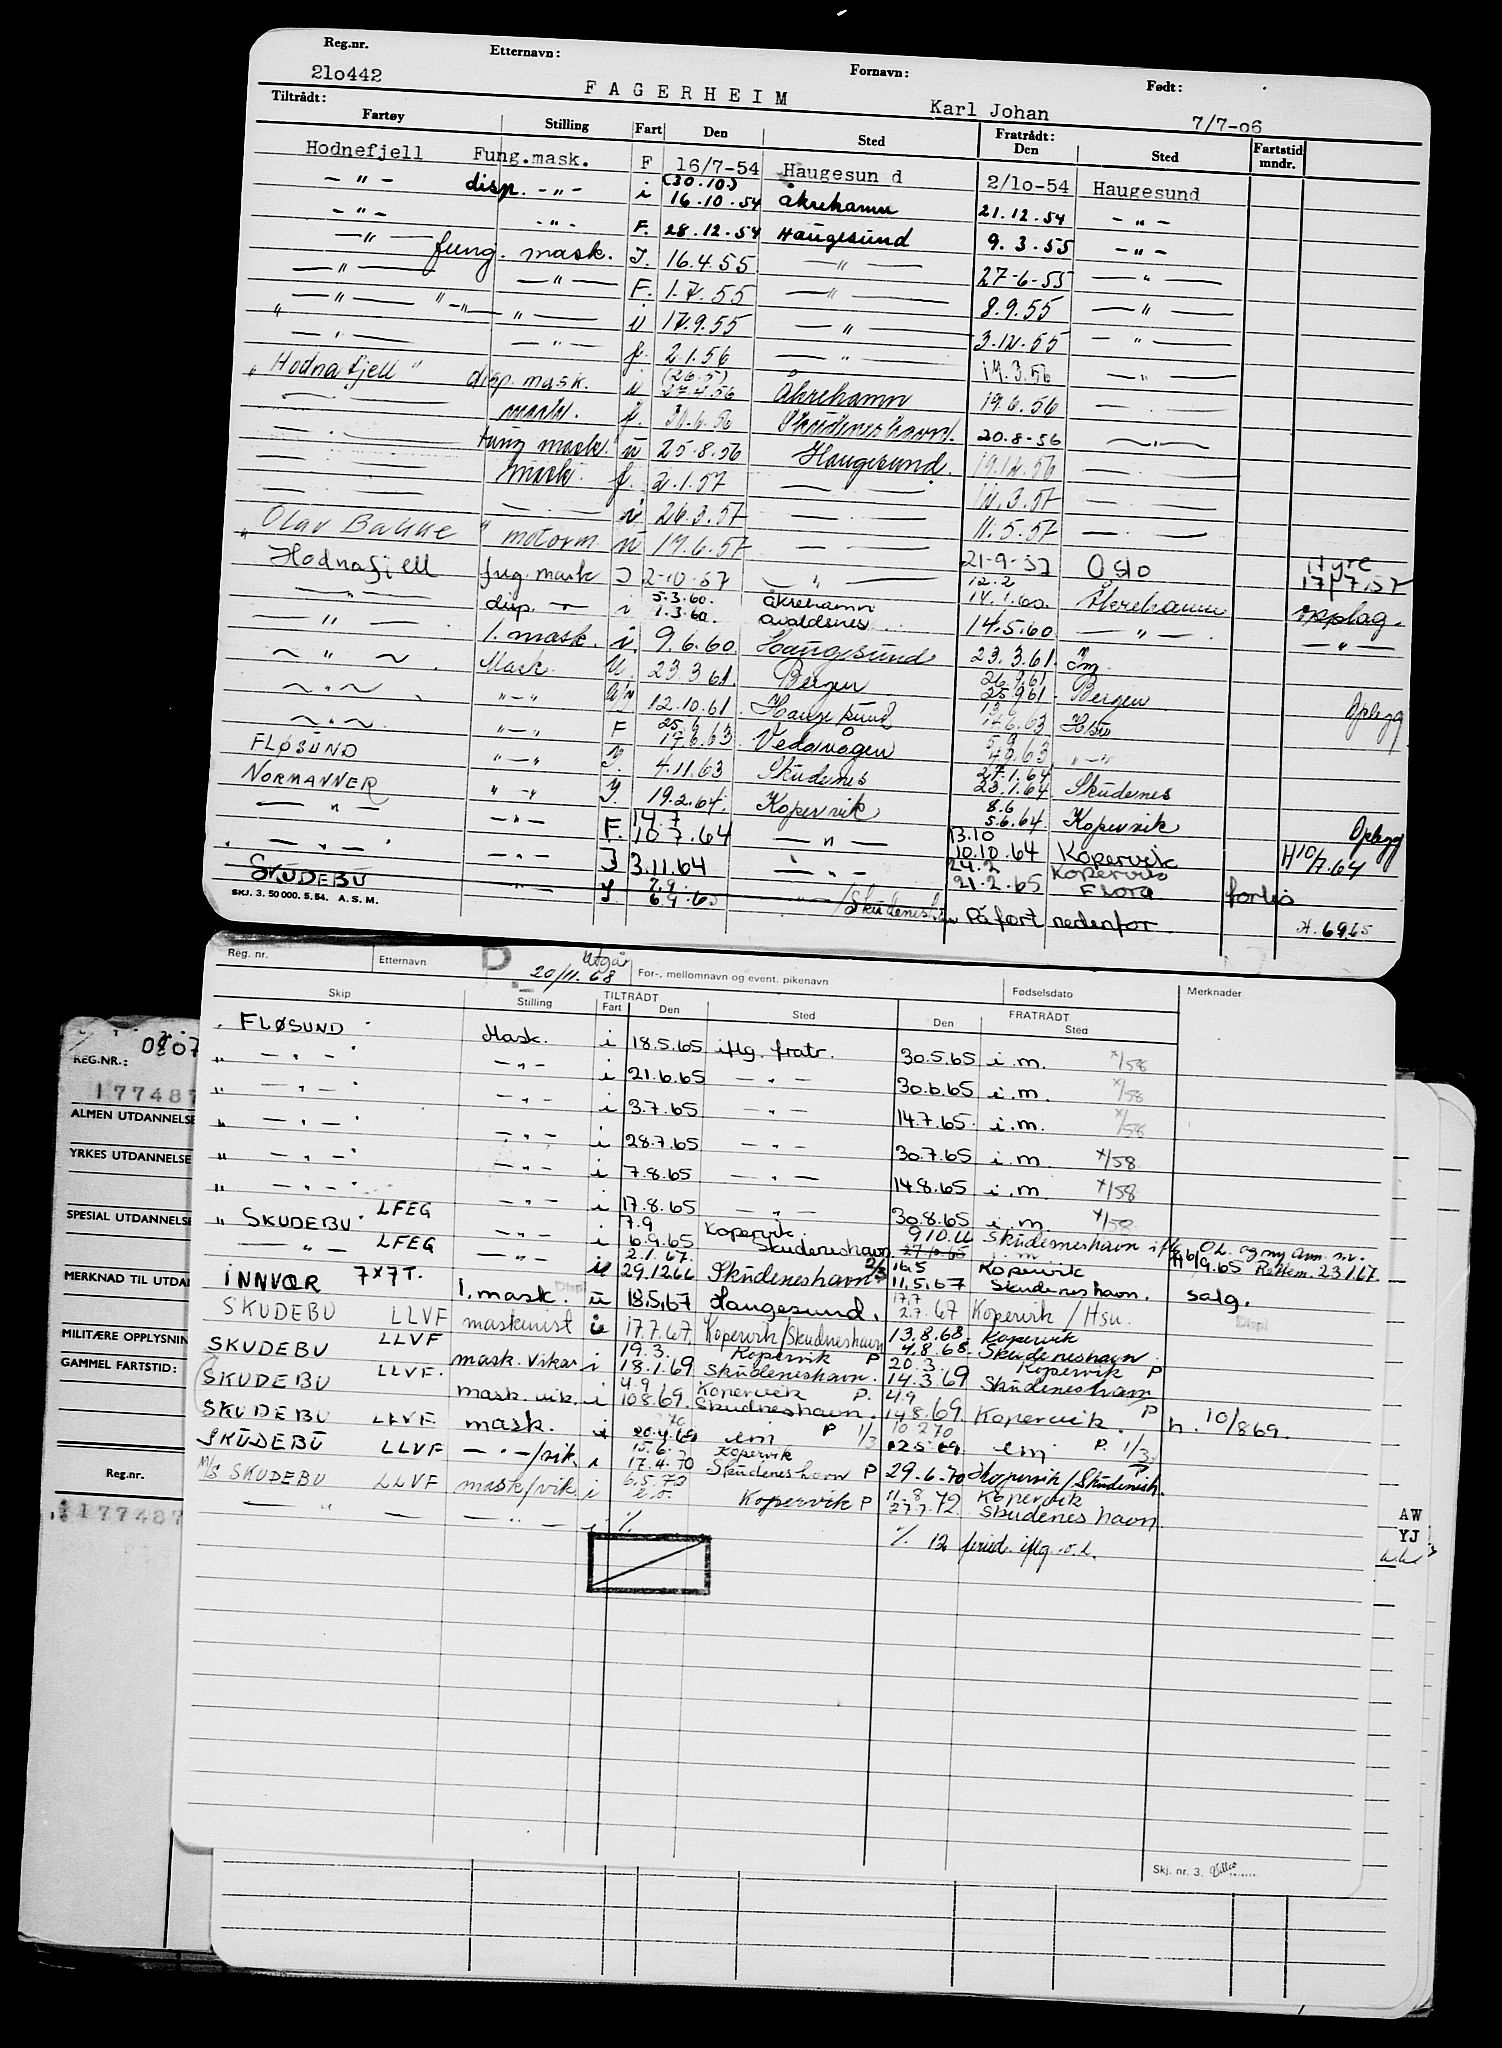 Reg.nr. Etternavn: Fornavn: Født:
21o442 FAGERHEIM Karl Johan 7/7-o6
Tiltrådt: Fratrådt:
Fartøy Stilling Fart Den Sted Den Sted Fartstid mndr.
Hodnefjell Fung.mask. F 16/7-54 Haugesun d 2/1o-54 Haugesund
- " - disp. - " - i (30.10.) 16.10.54 Åkrehamn 21.12.54 - " -
- " - - " - F. 28.12.54 Haugesund 9.3.55 - " -
- " - fung. mask. I. 16.4.55 - " - 27-6-55 - " -
- " - - " - F. 1.7.55 - " - 8.9.55 - " -
" - " - " - " - - " - i 17.9.55 - " - 3.12.55 - " -
- " - - " - f. 2.1.56 - " - 14.3.56 - " -
"Hodnafjell" disp. mask. u (26.5) 27.4.56 Åkrehamn 19.6.56 - " -
- " - mask. f. 30.6.56 Skudeneshavn. 20.8-56 - " -
- " - fung mask. u 25.8.56 Haugesund. 19.12.56 - " -
- " - mask. f. 2.1.57 - " - 12.3.57 - " -
- " - - " - i 26.3.57 - " - 11.5.57 - " -
"Olav Bakke" motorm. u 19.6.57 - " - 21-9-57 Oslo styrc 17/7.57
Hodnafjell fug. mask I 2-10-57 - " - 12.2 14.1.60. Åkrehamn opplag.
- " - disp. - " - i 5.3.60. 1.3.60. Åkrehamn Avaldsnes 14.5.60 - " - - " -
- " - 1. mask. i. 9.6.60 Haugesund 23.3.61. Im
- " - Mask. U. 23.3.61. Bergen 26.9.61 25.9.61 Bergen Opbygg
- " - " - " 12.10.61 Haugesund 14.6.63 Hsu
- " - " - " F 25.6 17.6.63 Vedavågen 5.9 4.9.63 " - "
FLØSUND " - " I. 4.11.63 Skudenes 27.1.64 23.1.64 Skudenes
NORMANNER " - " I. 19.2.64. Kopervik 8.6 5.6.64. Kopervik Opbygg
- " - - " - F. 14.7 10.7.64 - " - 13.10 10.10.64 Kopervik H 10/7.64
- " - - " - I 3.11.64 - " - 24.2 21.2.65 Kopervik Flora forlis
SKUDEBU " I 7.9. 6.9.65 - " - /Skudenesh. På fort nedenfor H. 6.9.65
SKJ. 3. 50 000. 5. 54. A. S. M.
Reg. nr. Etternavn Utgår 20/11.68 For-, mellomnavn og event. pikenavn Fødselsdato Merknader
Skip Stilling TILTRÅDT Fart Den Sted FRATRÅDT Den Sted
FLØSUND Mask. i 18.5.65 iflg. fratr. 30.5.65 i.m. x/58
" - " - - " - i 21.6.65 - " - 30.6.65 i.m. x/58
" - " - - " - i 3.7.65 - " - 14.7.65 i.m. x/58
" - " - - " - i 28.7.65 - " - 30.7.65 i.m. x/58
" - " - - " - i 7.8.65 - " - 14.8.65 i.m. x/58
" - " - - " - i 17.8.65 - " - 30.8.65 i.m. x/58
" SKUDEBU LFEG - " - i 7.9 6.9.65 Kopervik. Skudeneshavn 9.10.66 27.10.65 Skudeneshavn iflg O.L. og my Am. m.v.
- " - LFEG - " - 2.1.67 29.12.66 Skudeneshavn 2/3 16.5 11.5.67 Kopervik Skudeneshavn. H 6/9.65 Rettem. 23.1.67.
INNVÆR 7x7T. 1. mask. u 18.5.67 Haugesund. 17.7 2.7.67 Kopervik / Hsu. salg.
SKUDEBU LLVF maskinist i 17.7.67 Kopervik/Skudneshavn 13.8.68. 4.8.68. Kopervik Skudeneshavn
SKUDEBU LLVF mask. vikar i 19.3. 18.1.69 Kopervik P Skudeneshavn. 20.3. 14.3.69 Kopervik P Skudeneshavn
SKUDEBU LLVF. mask. vik. i 4.9 10.8.69. Kopervik P. Skudneshavn. 4.9 14.8.69. Kopervik P h. 10/8 69.
SKUDEBU LLVF mask. i 20.9.69 em P 1/3 10.2.70 em P. 1/3
SKUDEBU LLVF - " - /vik. i 15.6. 17.4.70 Kopervik Skudeneshavn P 29.6.70 Kopervik/Skudenesh.
M/S SKUDEBU LLVF mask/vik. i 6.5.72 Kopervik P 11.8.72 27.7.72. Kopervik Skudeneshavn
- " - - " - i % % 12 feried. iflg. o.l.
REG.NR.: 177487
ALMEN UTDANNELSE
YRKES UTDANNELSE
SPESIAL UTDANNELSE
MERKNAD TIL UTDAN
MILITÆRE OPPLYSNIN
GAMMEL FARTSTID:
Reg.nr.
177487
AW
YJ
Skj. nr. 3.